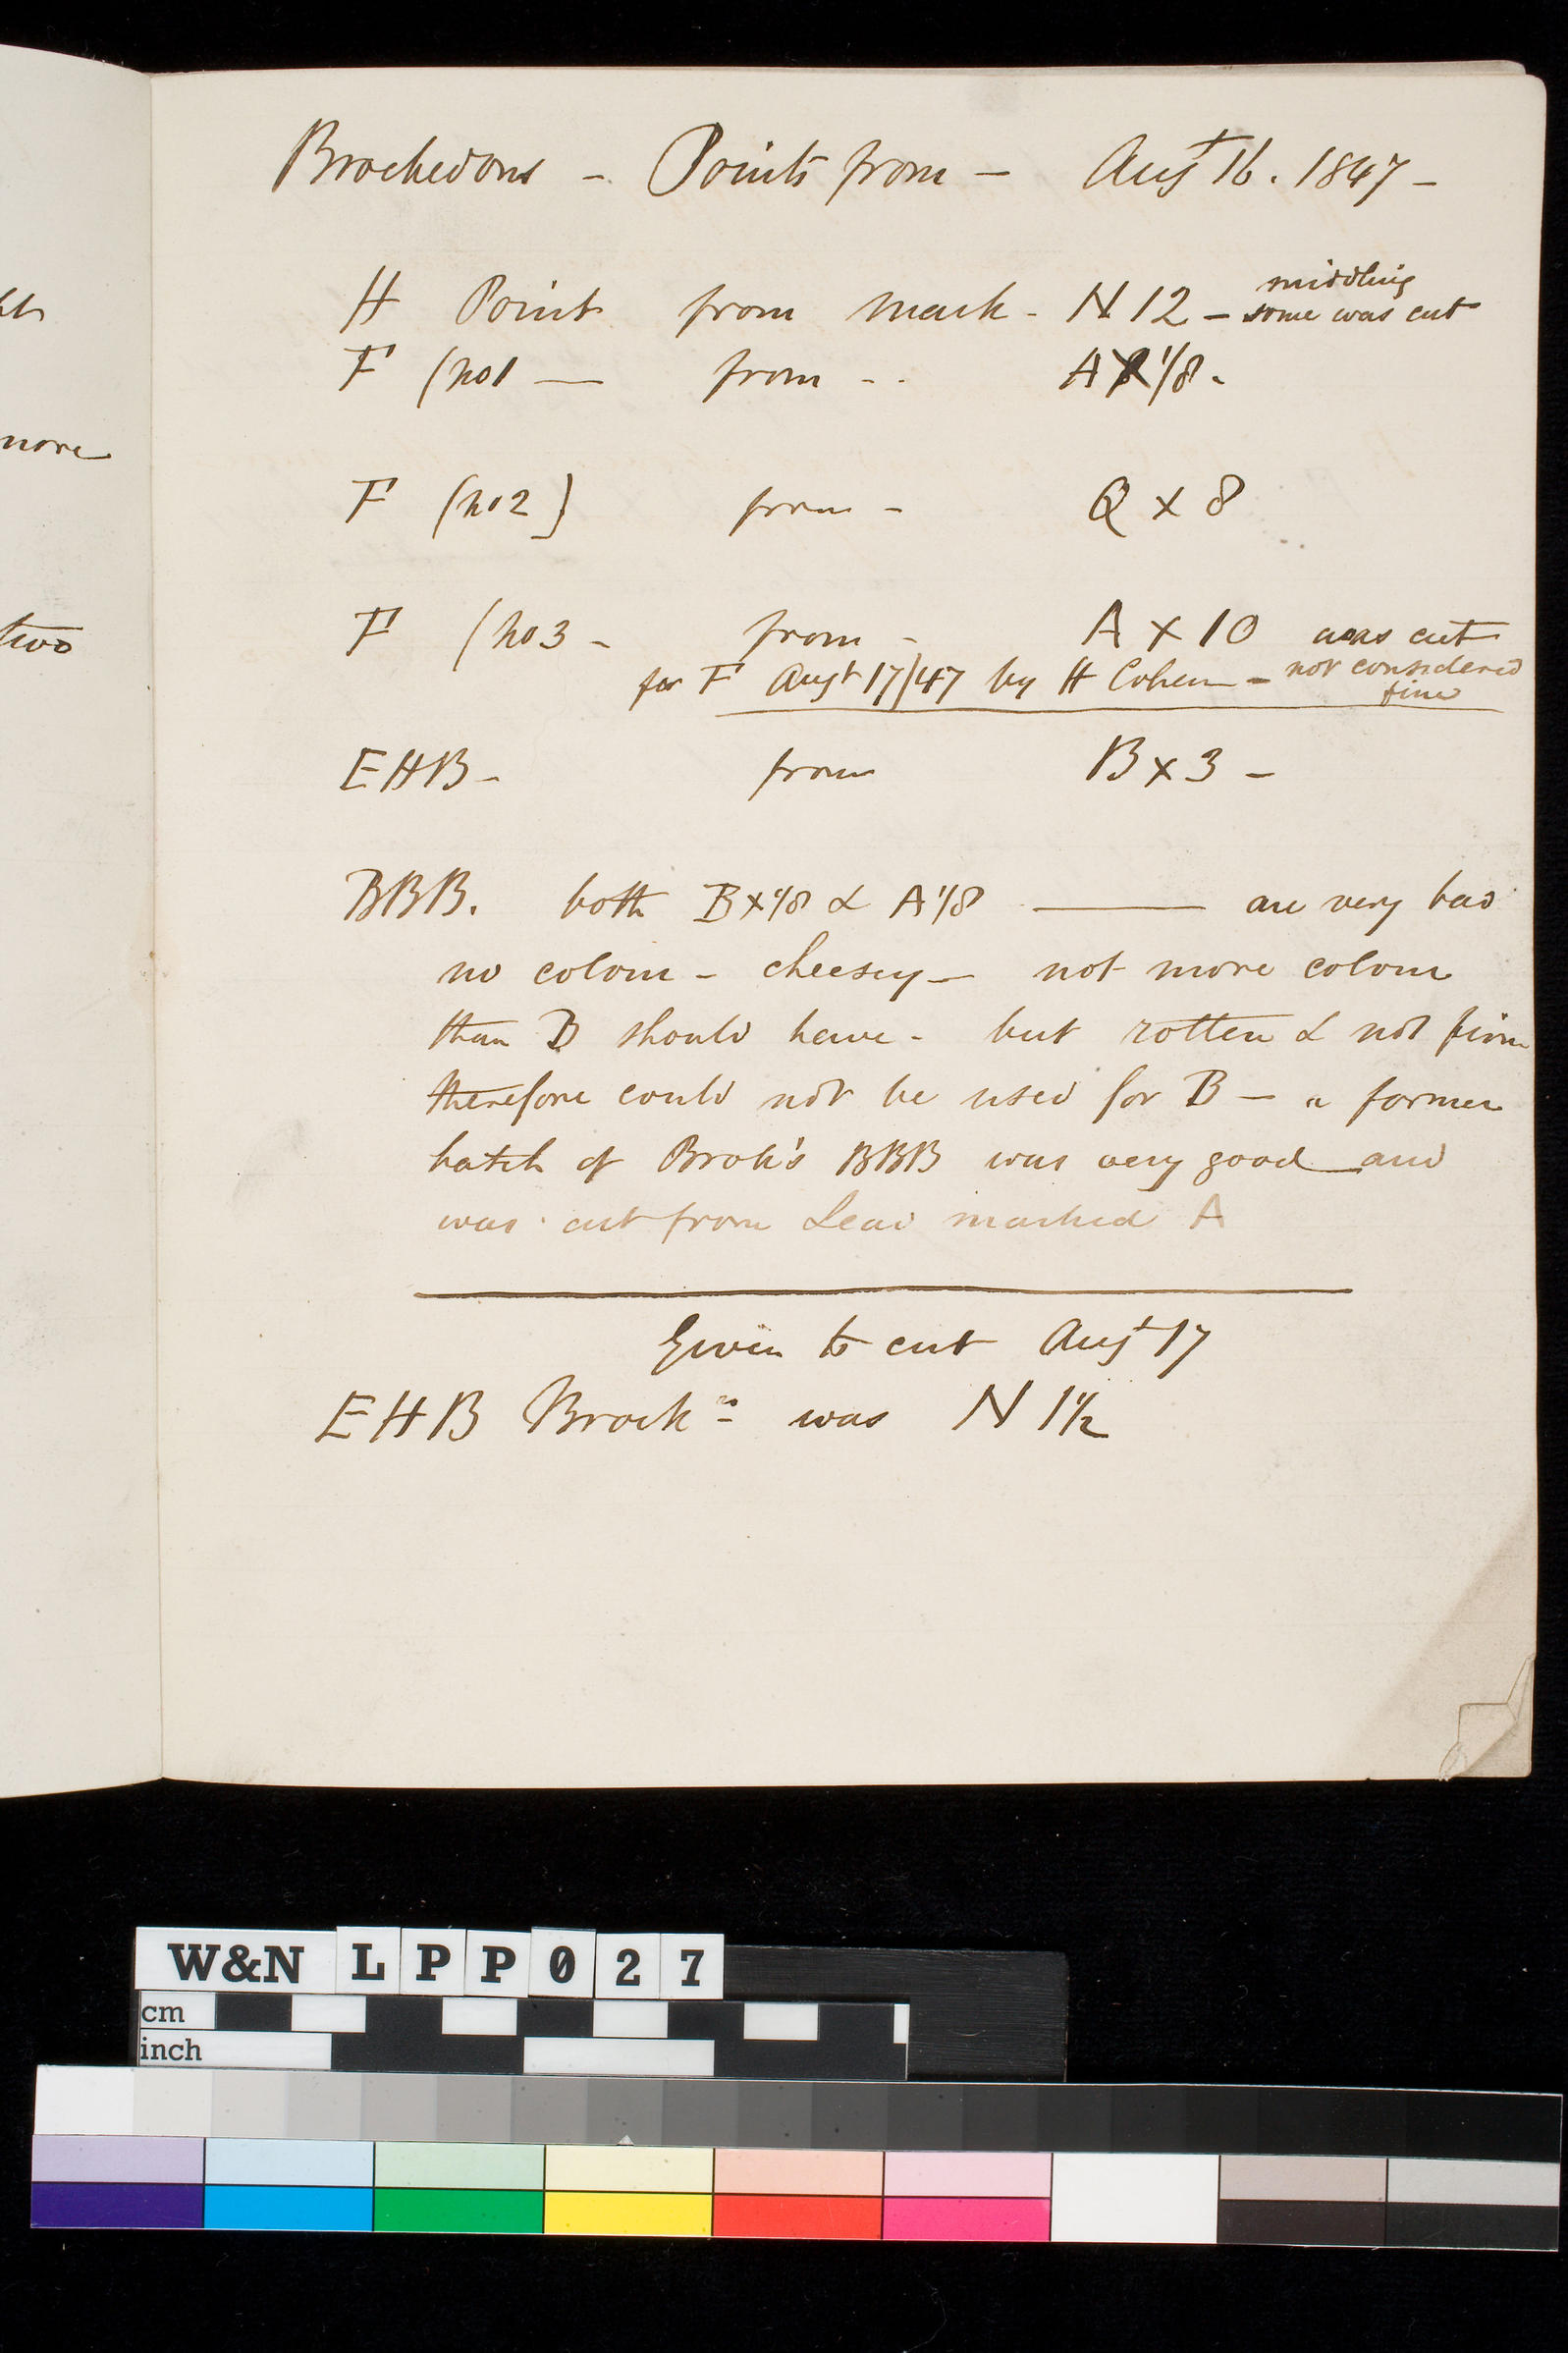 Brockedons - Points from - Augt 16. 1847 -
middling
H Point from mark - N 12 - some was cut
F (no1 — from - - A X 1/8 -
F (no2) from - Q x 8
F (no3 - from - A x 10 was cut
for F Augt 17/47 by H Cohen - not considered
fine
EHB - from B x 3 -
BBB. both B x 1/8 & A 1/8 ——— are very bad
no colour - cheesey - not more colour
than B should have - but rotten & not firm
therefore could not be used for B - a former
batch of Brok's BBB was very good and
was cut from Lead marked A
Given to cut Augt 17
EHB Brockns was N 1 1/2
more
two
W&N LPP027
cm
inch